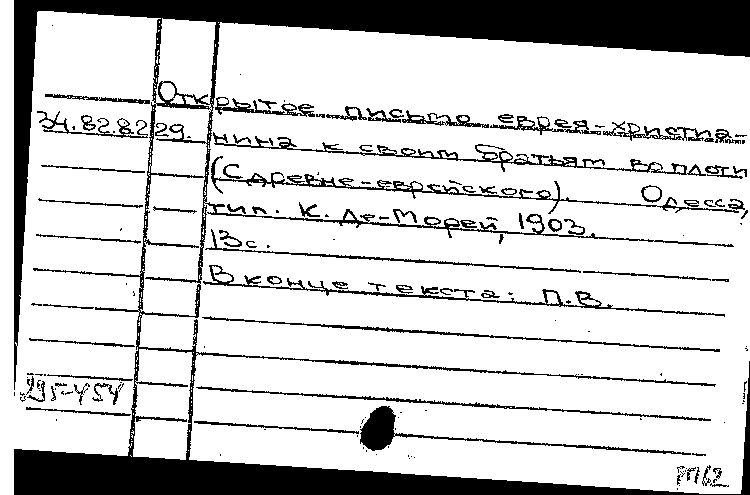 Открытое письмо еврея-христиа-
34.82.8229. нина к своим братьям во плоти
(С древне-еврейского). Одесса,
тип. К. Де-Морей, 1903.
13с.
В конце текста: П.В.
295-454